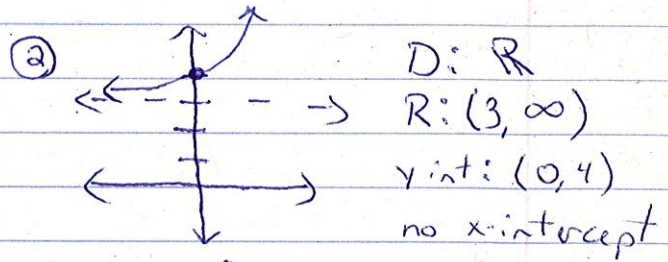 ②
D: ℝ
R: (3, ∞)
y int: (0,4)
no x-intercept